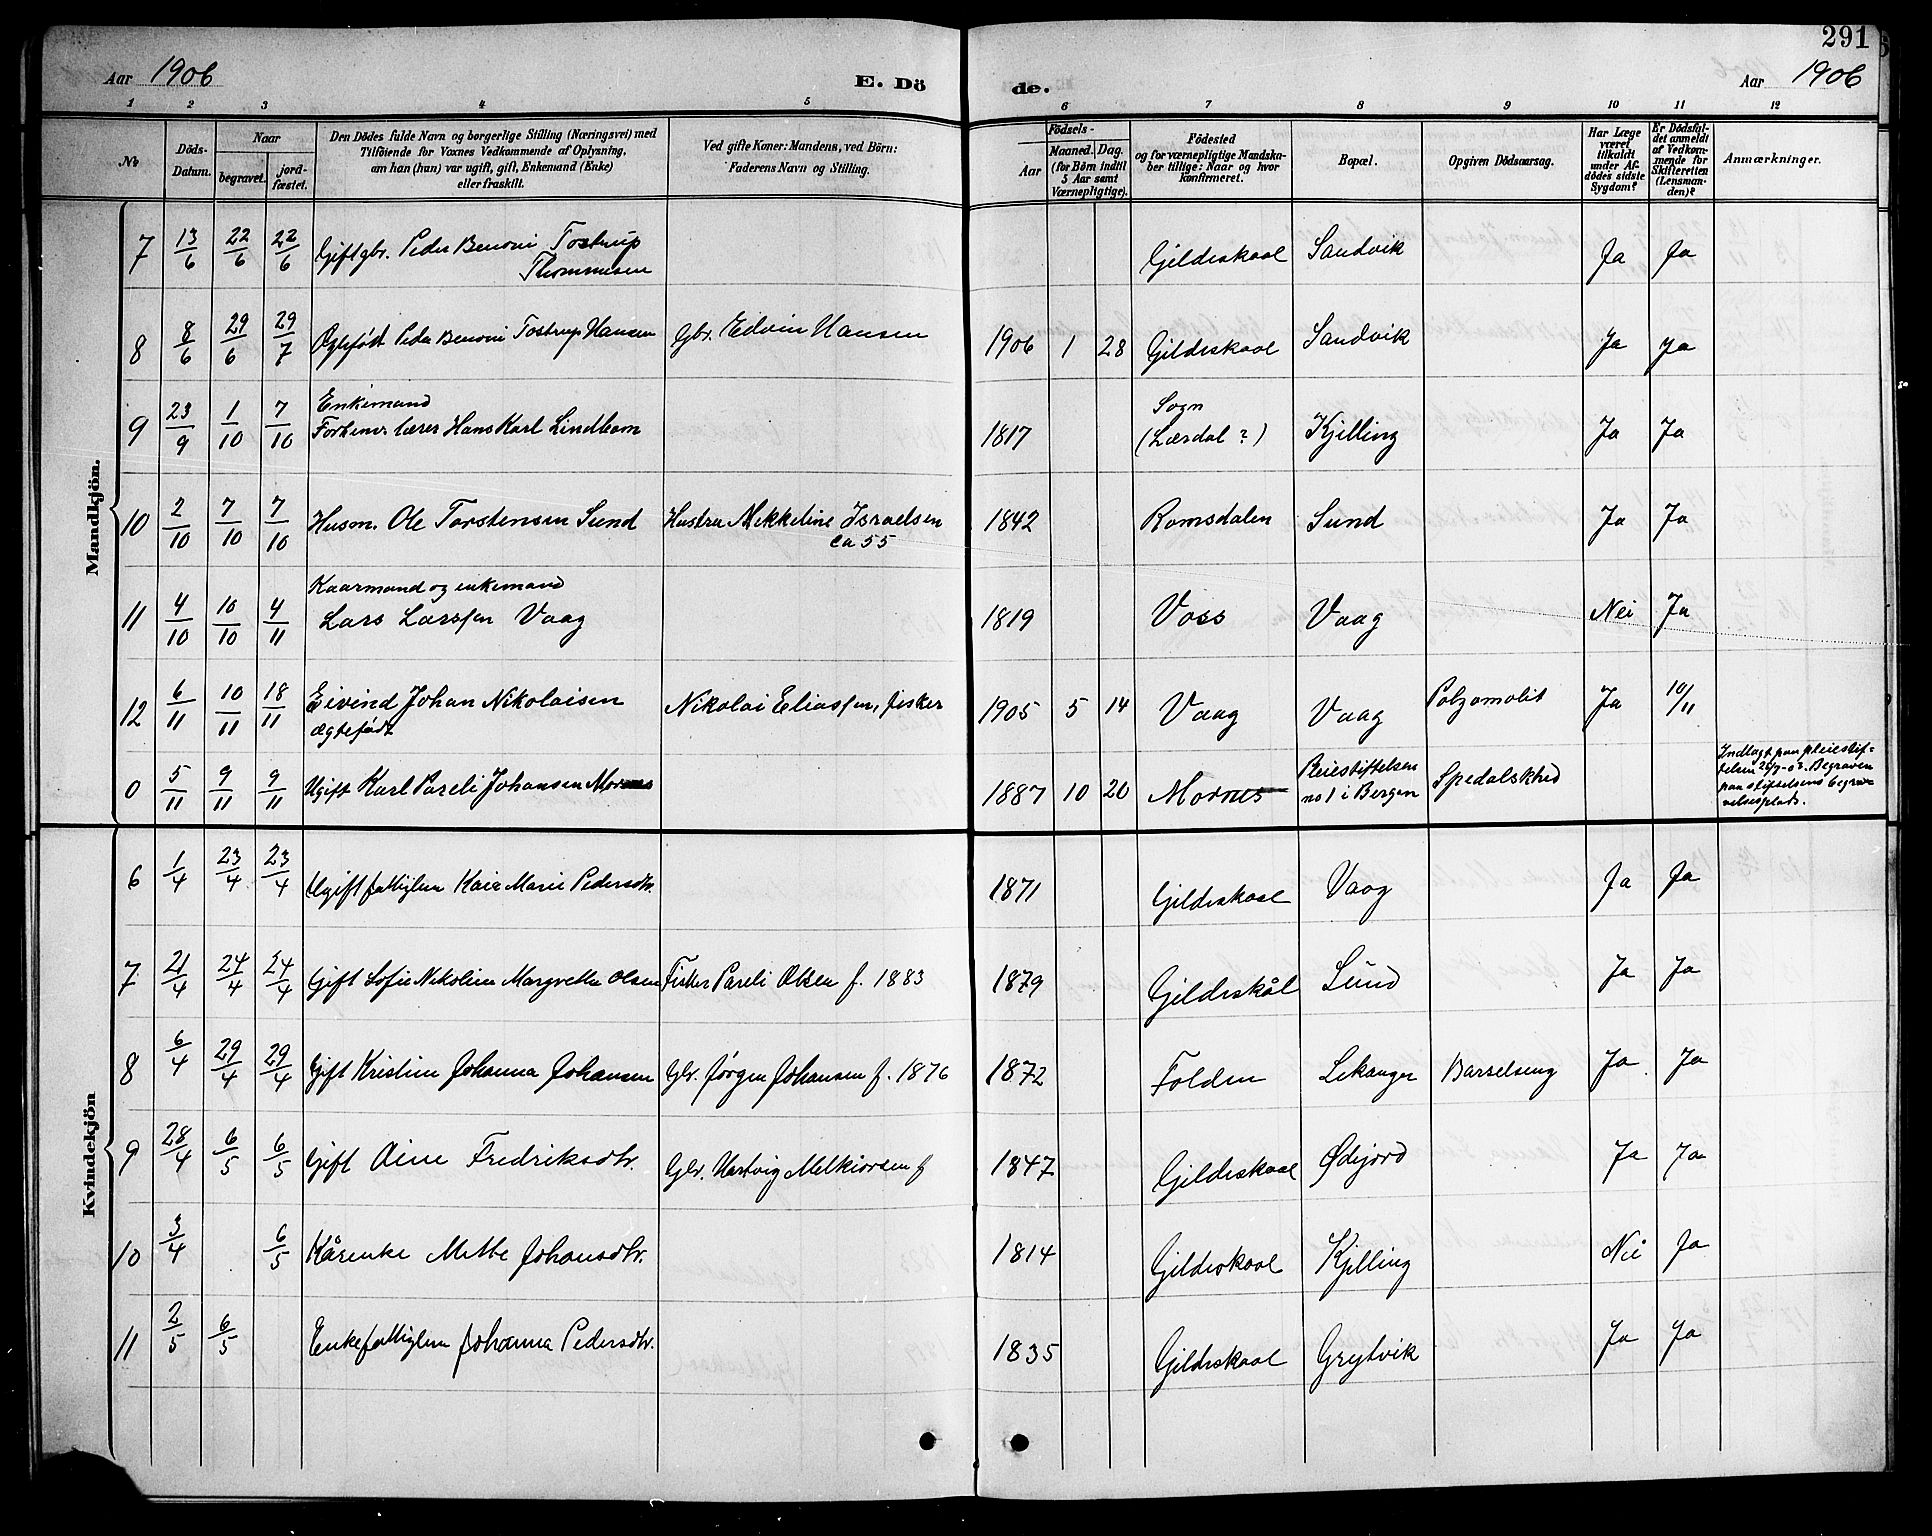 291
Aar 1906 E. Dö de. Aar 1906
1 2 3 4 5 6 7 8 9 10 11 12
No
Döds-Datum.
Naar
begravet.
jord-fæstet.
Den Dödes fulde Navn og borgerlige Stilling (Næringsvei) med
Tilföiende for Voxnes Vedkommende af Oplysning,
om han (hun) var ugift, gift, Enkemand (Enke)
eller fraskilt.
Ved gifte Koner: Mandens, ved Börn:
Faderens Navn og Stilling.
Födsels-
Aar
Maaned. Dag.
(for Börn indtil
5 Aar samt
Værnepligtige).
Födested
og for værnepligtige Mandska-
ber tillige: Naar og hvor
konfirmeret.
Bopæl.
Opgiven Dödsaarsag.
Har Læge
været
tilkaldt
under Af-
dödes sidste
Sygdom?
Er Dödsfal-
det anmeldt
af Vedkom-
mende for
Skifteretten
(Lensman-
den)?
Anmærkninger.
Mandkjön.
7 13/6 22/6 22/6 Gift gbr. Peder Benoni Tostrup Gildeskaal Sandvik Ja Ja
Thommesen
8 8/6 29/6 29/7 Ægtefødt Peder Benoni Tostrup Hansen Gbr. Edvin Hansen 1906 1 28 Gildeskaal Sandvik Ja Ja
Enkemand Sogn
9 23/9 1/10 7/10 Forhenv. lærer Hans Karl Lindbom 1817 (Lærdal ?) Kjelling Ja Ja
10 2/10 7/10 7/10 Husm. Ole Torstensen Sund Hustru Mekkeline Israelsen 1842 Romsdalen Sund Ja Ja
ca 55
Kaarmand og enkemand
11 4/10 10/10 4/11 Lars Larssen Vaag 1819 Voss Vaag Nei Ja
12 6/11 10/11 18/11 Eivind Johan Nikolaisen Nikolai Eliassen, fisker 1905 5 14 Vaag Vaag Ja 10/11
ægtefødt
0 5/11 9/11 9/11 Ugift Karl Pareli Johansen Mornes 1887 10 20 Mornes Pleiestiftelsen
no 1 i Bergen Spedalskhed
Indlagt paa pleiestif-
telsen 26/9-03. Begraven
paa stiftelsens begra-
velsesplads.
Kvindekjön
6 1/4 23/4 23/4 Ugift fattiglem Kaia Marie Pedersdtr. 1871 Gildeskaal Vaag Ja Ja
7 21/4 24/4 24/4 Gift Sofie Nikoline Margrethe Olsen Fisker Pareli Olsen f. 1883 1879 Gildeskål Sund Ja Ja
8 6/4 29/4 29/4 Gift Kristine Johanna Johansen Gbr. Jørgen Johansen f. 1876 1872 Folden Lekanger Barselseng Ja Ja
9 28/4 6/5 6/5 Gift Aine Fredriksdtr. Gbr. Hartvig Melkiorsen f 1847 Gildeskaal Ødejord Ja Ja
10 3/4 6/5 Kårenke Mette Johansdtr. 1814 Gildeskaal Kjelling Nei Ja
11 2/5 6/5 Enke fattiglem Johanna Pedersdtr. 1835 Gildeskaal Grytvik Ja Ja